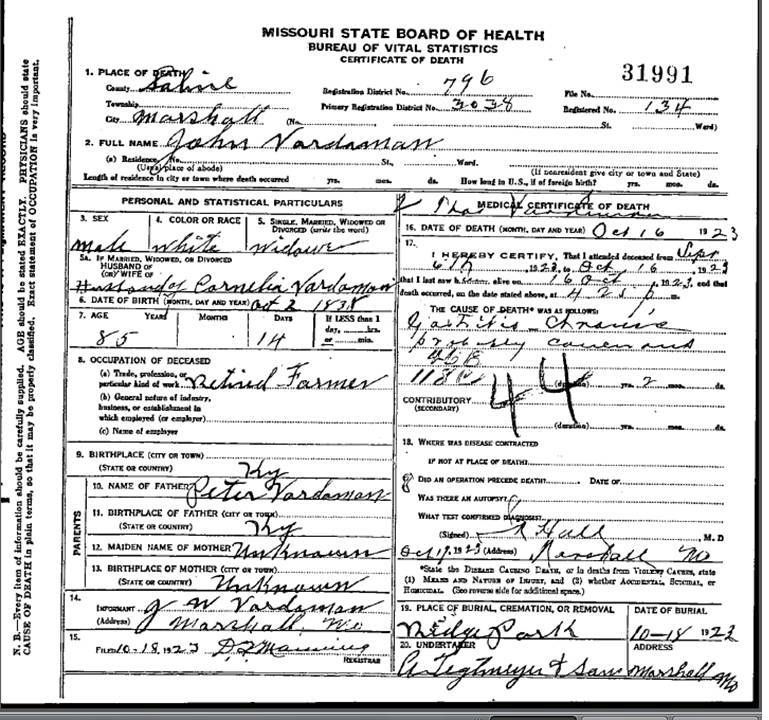 MISSOURI STATE BOARD OF HEALTH
BUREAU OF VITAL STATISTICS
CERTIFICATE OF DEATH
31991
1. PLACE OF DEATH
County Saline Registration District No. 796 File No.
Township Primary Registration District No. 3038 Registered No. 134
City Marshall (No. St. Ward)
2. FULL NAME John Vardaman
(a) Residence, No. St., Ward.
(Usual place of abode) (If nonresident give city or town and State)
Length of residence in city or town where death occurred yrs. mos. ds. How long in U.S., if of foreign birth? yrs. mos. ds.
PERSONAL AND STATISTICAL PARTICULARS
3. SEX 4. COLOR OR RACE 5. SINGLE, MARRIED, WIDOWED OR DIVORCED (write the word)
Male White Widower
5A. IF MARRIED, WIDOWED, OR DIVORCED
HUSBAND OF
(OR) WIFE OF
Husband of Cornelia Vardaman
6. DATE OF BIRTH (MONTH, DAY AND YEAR) Oct 2 1838
7. AGE YEARS MONTHS DAYS If LESS than 1 day, hrs. or min.
85 14
8. OCCUPATION OF DECEASED
(a) Trade, profession, or
particular kind of work Retired Farmer
(b) General nature of industry,
business, or establishment in
which employed (or employer)
(c) Name of employer
9. BIRTHPLACE (CITY OR TOWN)
(STATE OR COUNTRY) Ky
PARENTS
10. NAME OF FATHER Peter Vardaman
11. BIRTHPLACE OF FATHER (CITY OR TOWN)
(STATE OR COUNTRY) Ky
12. MAIDEN NAME OF MOTHER Unknown
13. BIRTHPLACE OF MOTHER (CITY OR TOWN)
(STATE OR COUNTRY) Unknown
14.
INFORMANT J W Vardaman
(Address) Marshall, Mo
15.
FILED 10-18, 1923 Manning
REGISTRAR
MEDICAL CERTIFICATE OF DEATH
16. DATE OF DEATH (MONTH, DAY AND YEAR) Oct 16 1923
17.
I HEREBY CERTIFY, That I attended deceased from Sept
6th, 1923, to Oct 16, 1923
that I last saw h alive on 16 Oct, 1923, and that
death occurred, on the date stated above, at 4 25 p m.
THE CAUSE OF DEATH* WAS AS FOLLOWS:
Gastritis Chronic
probably
44
(duration) yrs. 2 mos. ds.
CONTRIBUTORY
(SECONDARY)
(duration) yrs. mos. ds.
18. WHERE WAS DISEASE CONTRACTED
IF NOT AT PLACE OF DEATH?
DID AN OPERATION PRECEDE DEATH? DATE OF
WAS THERE AN AUTOPSY?
WHAT TEST CONFIRMED DIAGNOSIS?
(Signed) Hall, M. D
Oct 17, 1923 (Address) Marshall Mo
*State the DISEASE CAUSING DEATH, or in deaths from VIOLENT CAUSES, state
(1) MEANS AND NATURE OF INJURY, and (2) whether ACCIDENTAL, SUICIDAL, or
HOMICIDAL. (See reverse side for additional space.)
19. PLACE OF BURIAL, CREMATION, OR REMOVAL DATE OF BURIAL
Ridge Park 10-18 1923
20. UNDERTAKER ADDRESS
Tegtmeyer & Sons Marshall Mo
N. B.—Every item of information should be carefully supplied. AGE should be stated EXACTLY. PHYSICIANS should state
CAUSE OF DEATH in plain terms, so that it may be properly classified. Exact statement of OCCUPATION is very important.